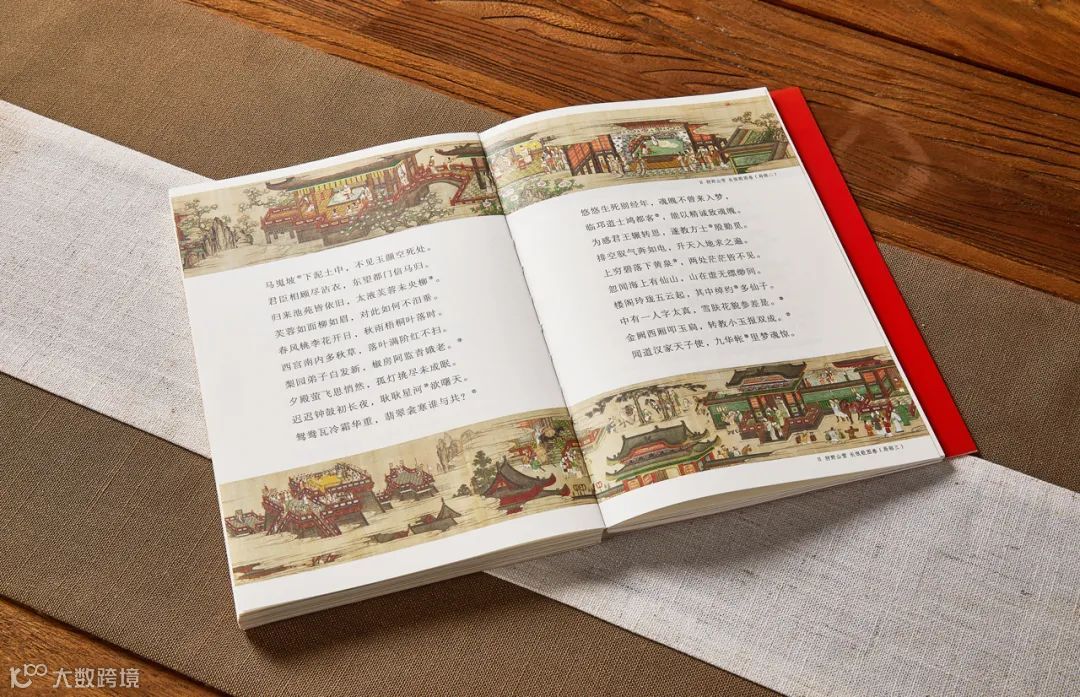 马嵬坡下泥土中，不见玉颜空死处。
君臣相顾尽沾衣，东望都门信马归。
归来池苑皆依旧，太液芙蓉未央柳。
芙蓉如面柳如眉，对此如何不泪垂。
春风桃李花开日，秋雨梧桐叶落时。
西宫南内多秋草，落叶满阶红不扫。
梨园弟子白发新，椒房阿监青娥老。
夕殿萤飞思悄然，孤灯挑尽未成眠。
迟迟钟鼓初长夜，耿耿星河欲曙天。
鸳鸯瓦冷霜华重，翡翠衾寒谁与共？
日 狩野山雪 长恨歌图卷（局部二）
悠悠生死别经年，魂魄不曾来入梦，
临邛道士鸿都客，能以精诚致魂魄。
为感君王辗转思，遂教方士殷勤觅。
排空驭气奔如电，升天入地求之遍。
上穷碧落下黄泉，两处茫茫皆不见。
忽闻海上有仙山，山在虚无缥缈间。
楼阁玲珑五云起，其中绰约多仙子。
中有一人字太真，雪肤花貌参差是。
金阙西厢叩玉扃，转教小玉报双成。
闻道汉家天子使，九华帐里梦魂惊。
日 狩野山雪 长恨歌图卷（局部三）
大数跨境